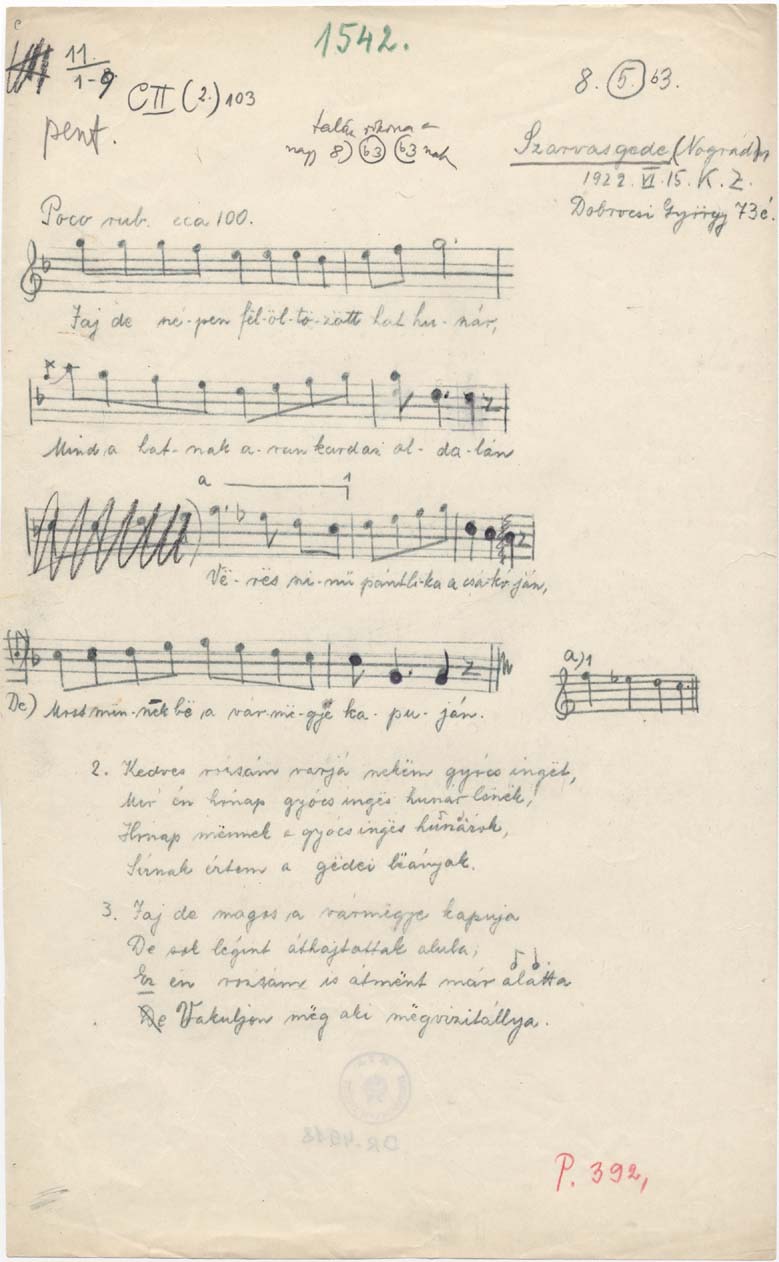 1542.
11.
1-9
CII (2.) 103
8. 5. b3.
pent.
talán rokona a
nagy 8) b3 b3 nak
Szarvasgede, (Nográd)
1922. VI. 15. K. Z.
Dobrocsi György 73 é.
Poco rub. cca 100.
Jaj de né-pen fël-öl-tö-zött hat hu-nár,
Mind a hat-nak a-ran kardazi ol-da-lán
a 1
Vë-rës szi-nü pántli-ka a csá-kó-ján,
De) Most mën-nek bë a vár-më-gje ka-pu-ján.
a) 1
2. Kedves rozsám varjá nekëm gyócs ingët,
Mer én hónap gyócs ingës hunár lënëk,
Hónap mënnek a gyócs ingës hunárok,
Sirnak értem a gëdei lëányok.
3. Jaj de magos a vármëgye kapuja
De sok legint áthajtottak alula,
Ez én rozsám is átmënt már alatta
De Vakuljon mëg aki mëgvizitállya.
DR. 4613
P. 392,